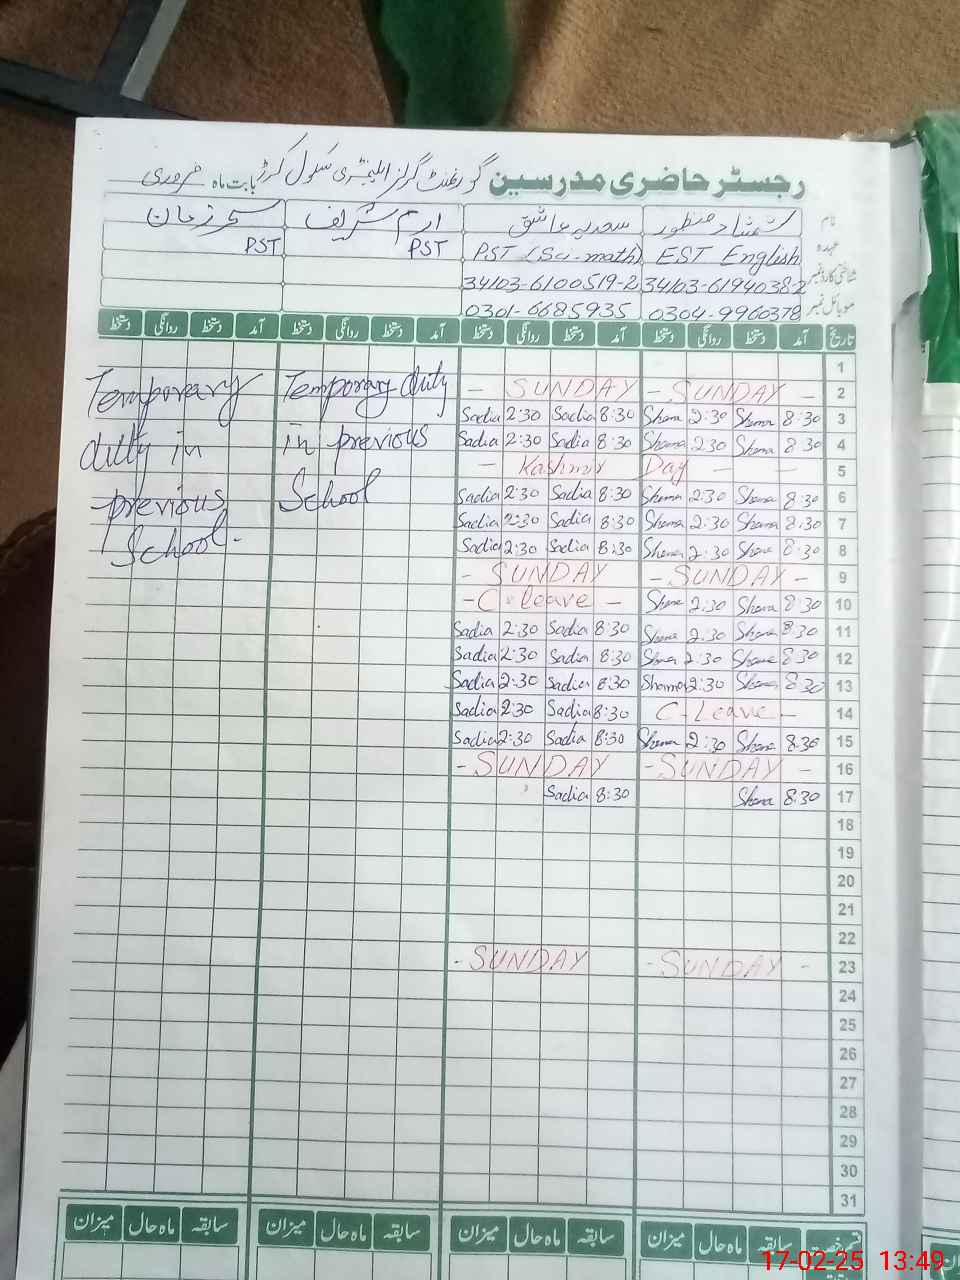 رجسٹر حاضری مدرسین گورنمنٹ گرلز ایلیمنٹری سکول کرڑ بابت ماہ فروری
نام شمشاد منظور سعدیہ عاشق ارم شریف سحر زمان
عہدہ EST English PST (Sci-math) PST PST
شناختی کارڈ نمبر 34103-6194038-2 34103-6100519-2
موبائل نمبر 0304-9960378 0301-6685935
تاریخ آمد دستخط روانگی دستخط آمد دستخط روانگی دستخط آمد دستخط روانگی دستخط آمد دستخط روانگی دستخط
1
Temporary Temporary duty - SUNDAY - SUNDAY - 2
Sadia 2:30 Sadia 8:30 Shama 2:30 Shama 8:30 3
duty in in previous Sadia 2:30 Sadia 8:30 Shama 2:30 Shama 8:30 4
- Kashmir Day - - 5
previous School Sadia 2:30 Sadia 8:30 Shama 2:30 Shama 8:30 6
Sadia 2:30 Sadia 8:30 Shama 2:30 Shama 8:30 7
School. Sadia 2:30 Sadia 8:30 Shama 2:30 Shama 8:30 8
- SUNDAY - SUNDAY - 9
- C-leave - Shama 2:30 Shama 8:30 10
Sadia 2:30 Sadia 8:30 Shama 2:30 Shama 8:30 11
Sadia 2:30 Sadia 8:30 Shama 2:30 Shama 8:30 12
Sadia 2:30 Sadia 8:30 Shama 2:30 Shama 8:30 13
Sadia 2:30 Sadia 8:30 C-Leave - 14
Sadia 2:30 Sadia 8:30 Shama 2:30 Shama 8:30 15
- SUNDAY - SUNDAY - 16
Sadia 8:30 Shama 8:30 17
18
19
20
21
22
- SUNDAY - SUNDAY - 23
24
25
26
27
28
29
30
31
سابقہ ماہ حال میزان سابقہ ماہ حال میزان سابقہ ماہ حال میزان سابقہ ماہ حال میزان
17-02-25 13:49